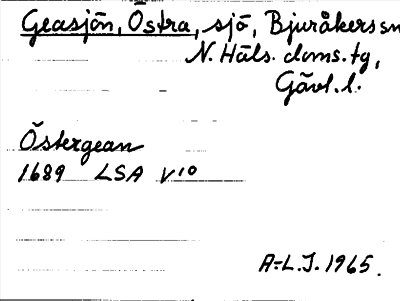 Geasjön, Östra, sjö, Bjuråkers sn
N. Häls. doms. tg,
Gävl. l.
Östergean
1689 LSA V10
A-L. J. 1965.